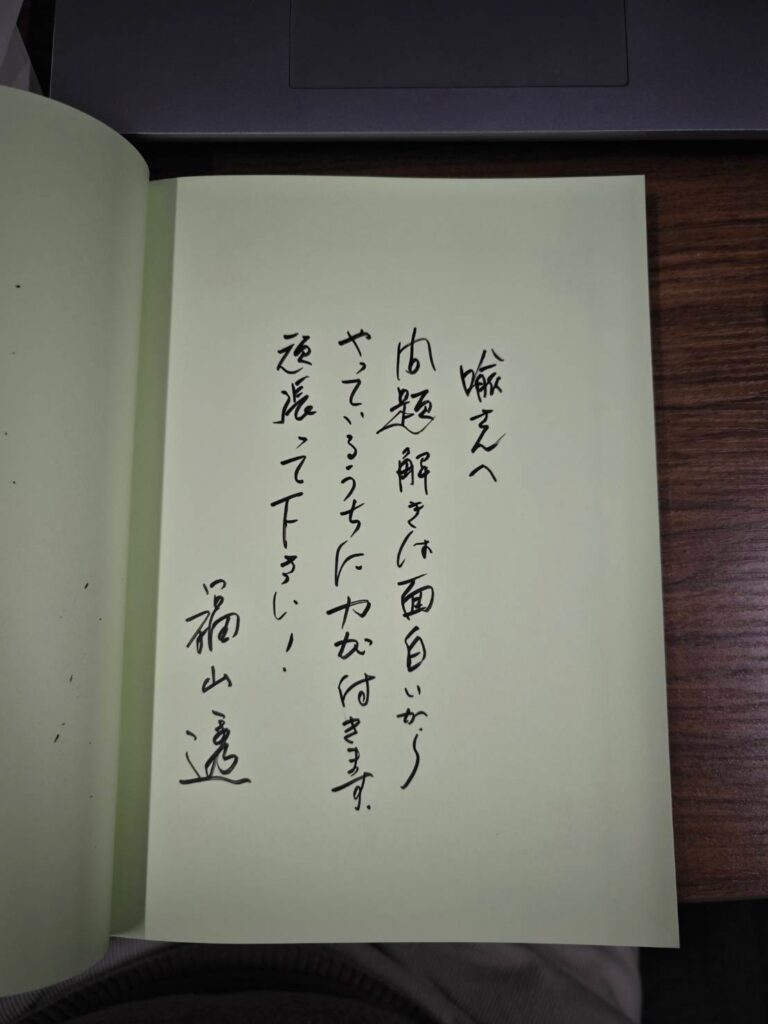 喩さんへ
問題解きは面白いから
やっているうちに力が付きます。
頑張って下さい！
福山透